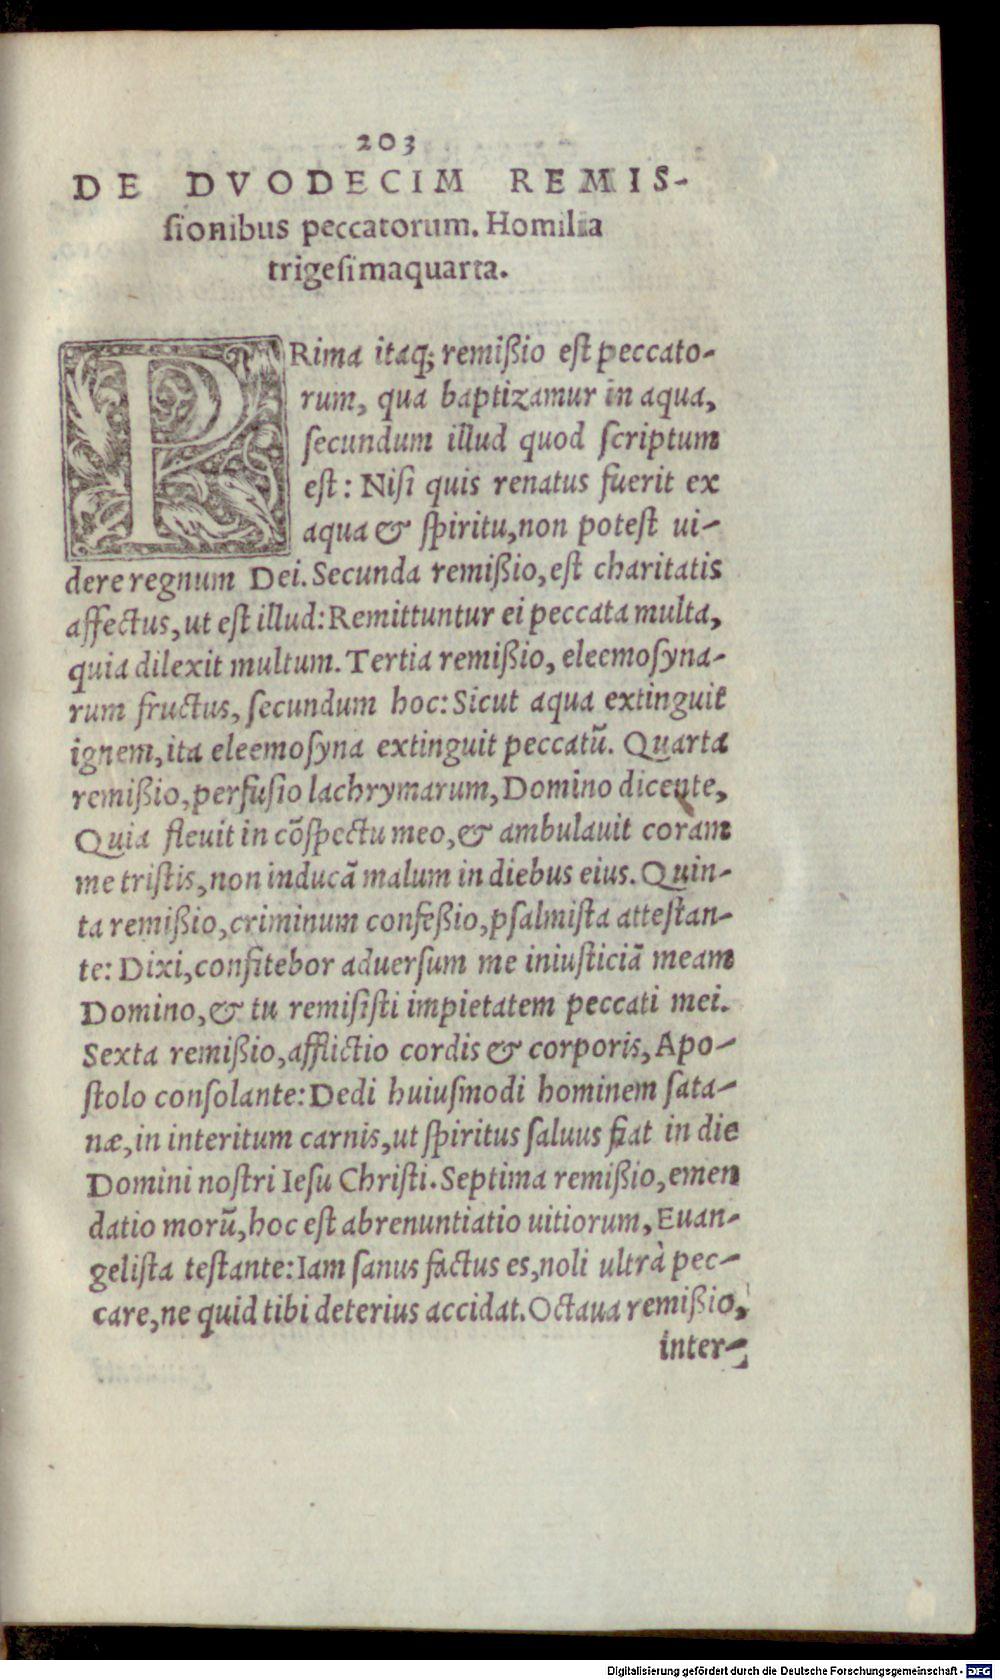 203
DE DVODECIM REMIS-
sionibus peccatorum. Homilia
trigesimaquarta.
PRima itaq; remißio est peccato-
rum, qua baptizamur in aqua,
secundum illud quod scriptum
est: Nisi quis renatus fuerit ex
aqua & spiritu, non potest ui-
dere regnum Dei. Secunda remißio, est charitatis
affectus, ut est illud: Remittuntur ei peccata multa,
quia dilexit multum. Tertia remißio, eleemosyna-
rum fructus, secundum hoc: Sicut aqua extinguit
ignem, ita eleemosyna extinguit peccatũ. Quarta
remißio, perfusio lachrymarum, Domino dicente,
Quia fleuit in cõspectu meo, & ambulauit coram
me tristis, non inducã malum in diebus eius. Quin-
ta remißio, criminum confeßio, psalmista attestan-
te: Dixi, confitebor aduersum me iniusticiã meam
Domino, & tu remisisti impietatem peccati mei.
Sexta remißio, afflictio cordis & corporis, Apo-
stolo consolante: Dedi huiusmodi hominem sata-
næ, in interitum carnis, ut spiritus saluus fiat in die
Domini nostri Iesu Christi. Septima remißio, emen
datio morũ, hoc est abrenuntiatio uitiorum, Euan-
gelista testante: Iam sanus factus es, noli ultrà pec-
care, ne quid tibi deterius accidat. Octaua remißio,
inter-
Digitalisierung gefördert durch die Deutsche Forschungsgemeinschaft - DFG